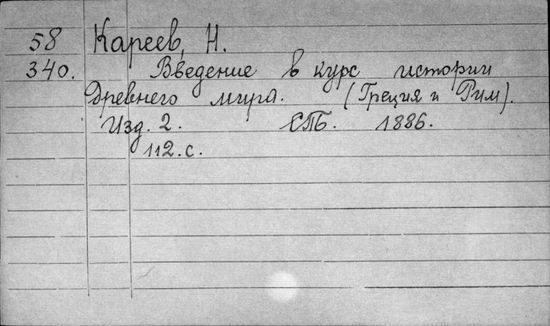 58 Кареев, Н.
340. Введение в курс истории
Древнего мира. (Греция и Рим).
Изд. 2. СПБ. 1886.
112.с.